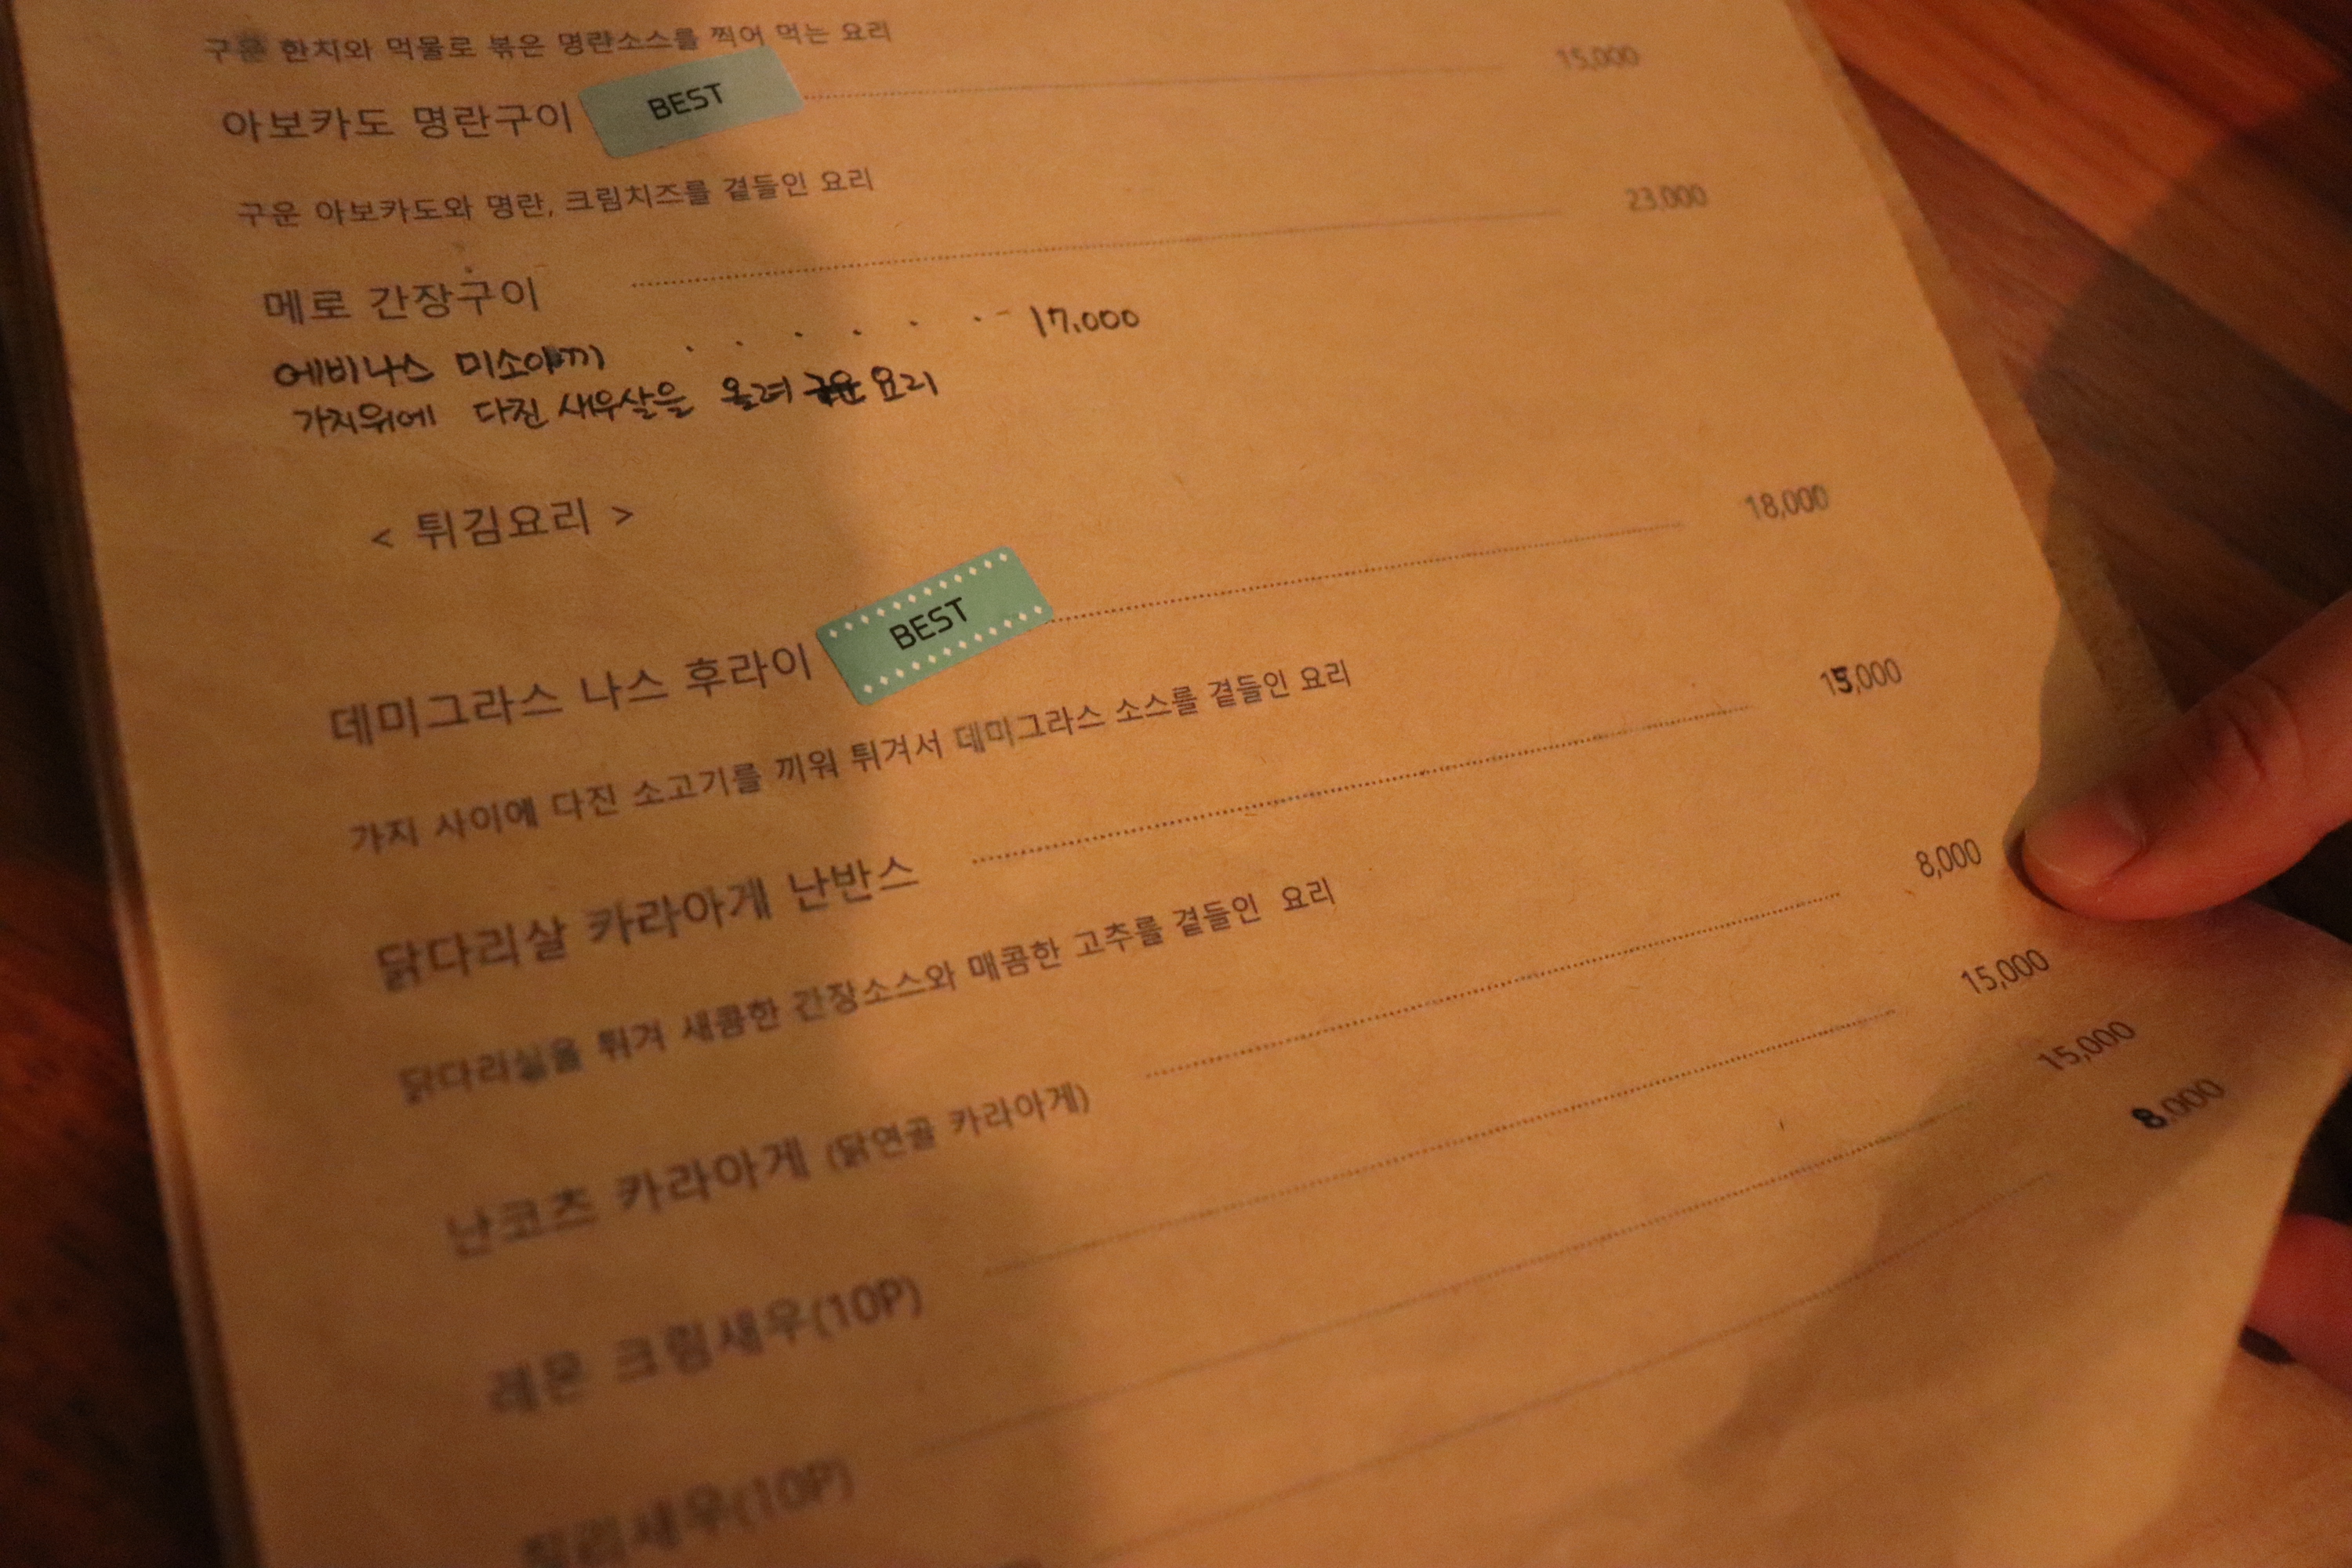 구운 한치와 먹물로 볶은 명란소스를 찍어 먹는 요리
아보카도 명란구이 BEST 15,000
구운 아보카도와 명란, 크림치즈를 곁들인 요리
메로 간장구이 23,000
에비나스 미소야끼 · · · · · · 17.000
가지위에 다진 새우살을 올려 구운 요리
< 튀김요리 >
데미그라스 나스 후라이 BEST 18,000
가지 사이에 다진 소고기를 끼워 튀겨서 데미그라스 소스를 곁들인 요리
닭다리살 카라아게 난반스 15,000
닭다리살을 튀겨 새콤한 간장소스와 매콤한 고추를 곁들인 요리
난코츠 카라아게 (닭연골 카라아게) 8,000
레몬 크림새우(10P) 15,000
칠리새우(10P) 15,000
8,000